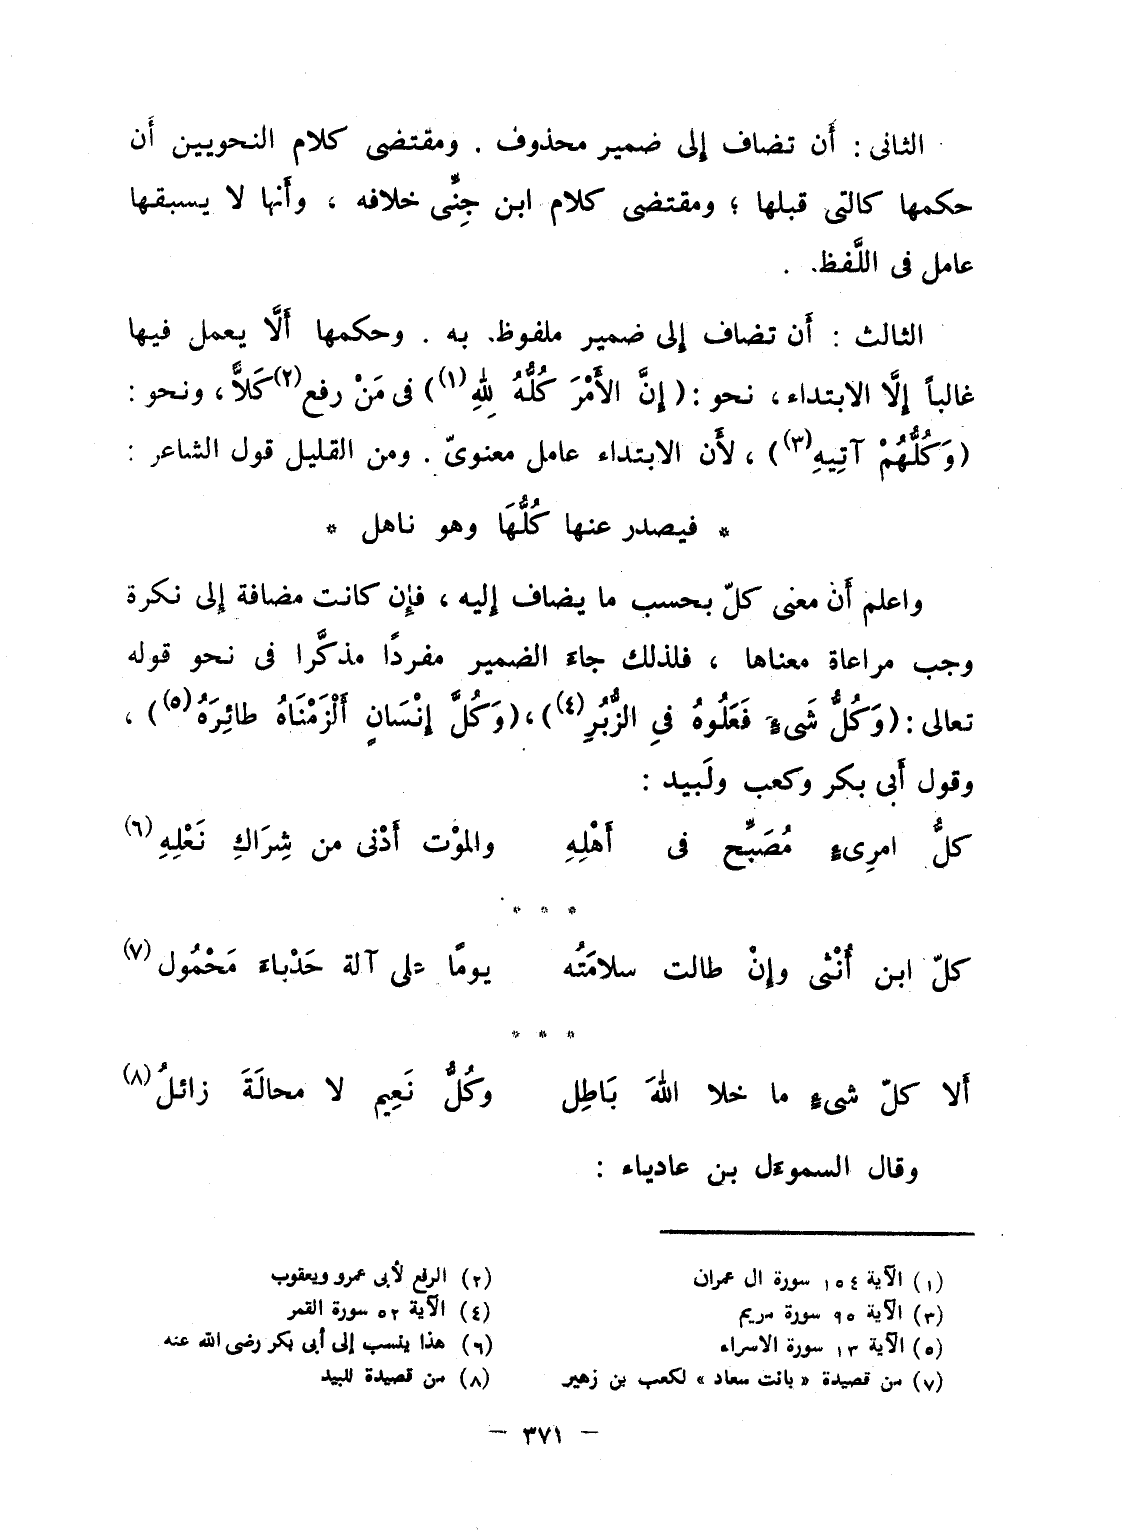 الثانى : أَن تضاف إلى ضمير محذوف . ومقتضى كلام النحويين أَن
حكمها كالتى قبلها ؛ ومقتضى كلام ابن جِنِّى خلافه ، وأَنها لا يسبقها
عامل فى اللَّفظ .
الثالث : أَن تضاف إلى ضمير ملفوظ به . وحكمها أَلَّا يعمل فيها
غالباً إلَّا الابتداء ، نحو : ( إِنَّ الأَمْرَ كُلُّهُ لِلهِ(١) ) فى مَنْ رفع(٢) كَلاًّ ، ونحو :
( وَكُلُّهُمْ آتِيهِ(٣) ) ، لأَن الابتداء عامل معنوىّ . ومن القليل قول الشاعر :
* فيصدر عنها كُلُّهَا وهو ناهل *
واعلم أَن معنى كلّ بحسب ما يضاف إليه ، فإن كانت مضافة إلى نكرة
وجب مراعاة معناها ، فلذلك جاءَ الضمير مفردًا مذكَّرا فى نحو قوله
تعالى : ( وَكُلُّ شَىءٍ فَعَلُوهُ فِي الزُّبُرِ(٤) ) ، ( وَكُلَّ إِنْسَانٍ أَلْزَمْنَاهُ طائِرَهُ(٥) ) ،
وقول أَبى بكر وكعب ولَبيد :
كلُّ امرِىءٍ مُصَبَّح فى أَهْلِهِ والموْت أَدْنى من شِرَاكِ نَعْلِهِ(٦)
* * *
كلّ ابن أُنْثى وإِنْ طالت سلامَتُه يومًا على آلة حَدْباءَ مَحْمُول(٧)
* * *
أَلا كلّ شىءٍ ما خلا اللهَ بَاطِل وكُلُّ نَعِيم لا محالَةَ زائلُ(٨)
وقال السموءَل بن عادياء :
(١) الآية ١٥٤ سورة ال عمران (٢) الرفع لأبى عمرو ويعقوب
(٣) الآية ٩٥ سورة مريم (٤) الآية ٥٢ سورة القمر
(٥) الآية ١٣ سورة الاسراء (٦) هذا ينسب إلى أبى بكر رضى الله عنه
(٧) من قصيدة « بانت سعاد » لكعب بن زهير (٨) من قصيدة للبيد
– ٣٧١ –